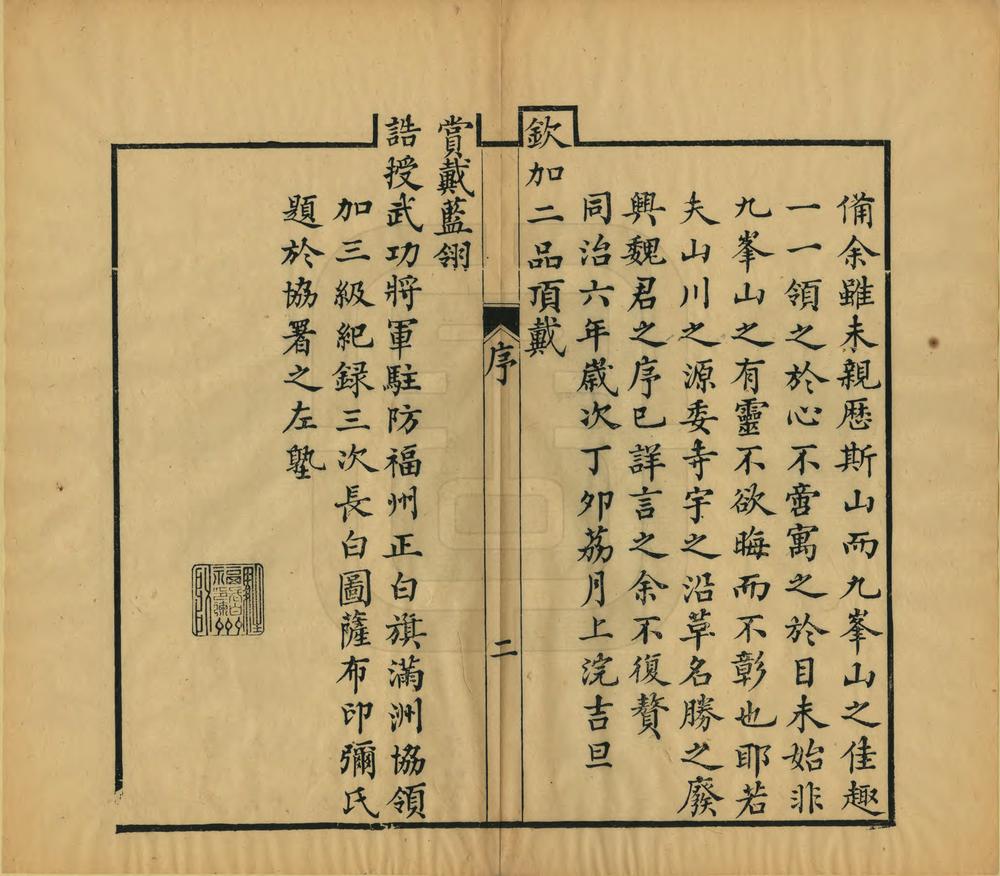 備余雖未親歷斯山而九峯山之佳趣
一一領之於心不啻寓之於目未始非
九峯山之有靈不欲晦而不彰也耶若
夫山川之源委寺宇之沿革名勝之廢
興魏君之序已詳言之余不復贅
同治六年歲次丁卯荔月上浣吉旦
欽加二品頂戴
序
二
賞戴藍翎
誥授武功將軍駐防福州正白旗滿洲協領
加三級紀録三次長白圖薩布印彌氏
題於協署之左塾